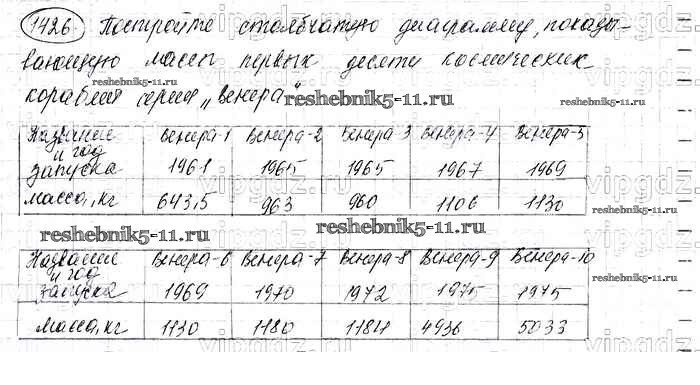 1426. Постройте столбчатую диаграмму, показы-
вающую массы первых десяти космических
кораблей серии „Венера“
reshebnik5-11.ru
Название и год запуска Венера-1 1961 Венера-2 1965 Венера-3 1965 Венера-4 1967 Венера-5 1969
масса, кг 643,5 963 960 1106 1130
reshebnik5-11.ru
reshebnik5-11.ru
reshebnik5-11.ru
reshebnik5-11.ru
Название и год запуска Венера-6 1969 Венера-7 1970 Венера-8 1972 Венера-9 1975 Венера-10 1975
reshebnik5-11.ru
масса, кг 1130 1180 1184 4936 5033
vipgdz.ru